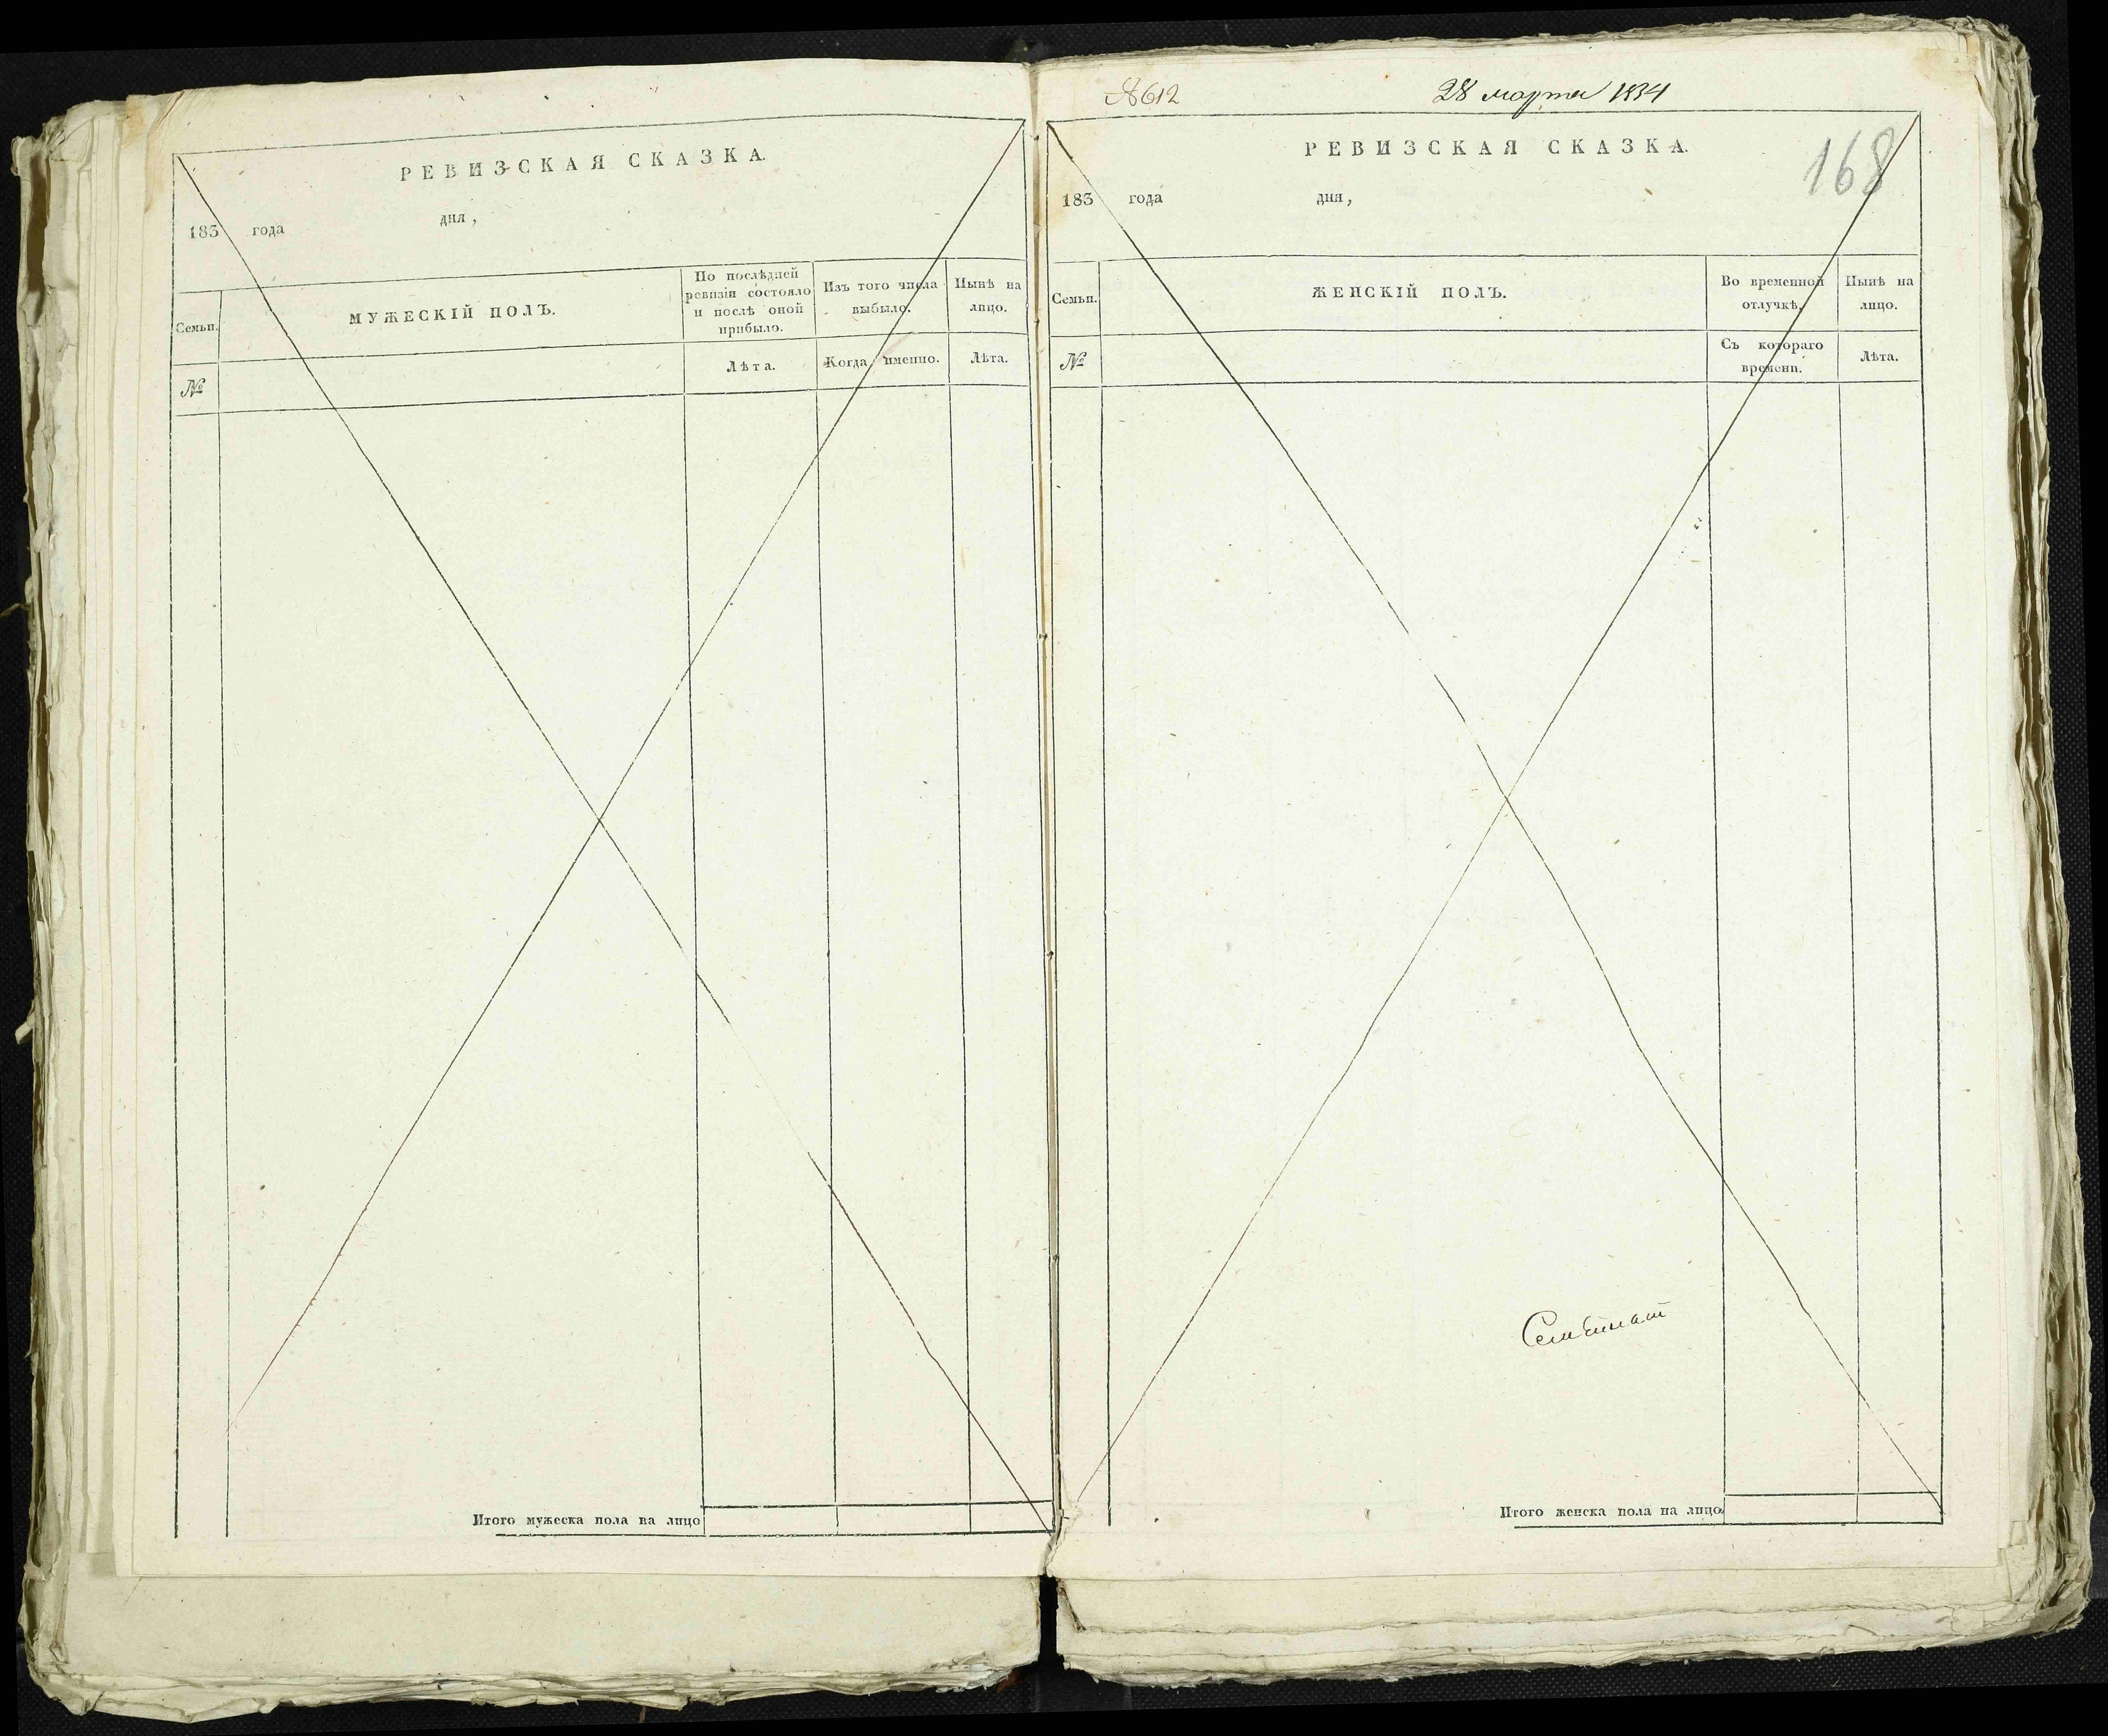 РЕВИЗСКАЯ СКАЗКА.
183 года дня,
Семьи.
МУЖЕСКІЙ ПОЛЪ.
По послѣдней
ревизіи состояло
и послѣ оной
прибыло.
Изъ того числа
выбыло.
Нынѣ на
лицо.
№
Лѣта.
Когда именно.
Лѣта.
Итого мужеска пола на лицо
№ 612
28 марта 1834
168
РЕВИЗСКАЯ СКАЗКА.
183 года дня,
Семьи.
ЖЕНСКІЙ ПОЛЪ.
Во временной
отлучкѣ.
Нынѣ на
лицо.
№
Съ котораго
времени.
Лѣта.
Итого женска пола на лицо